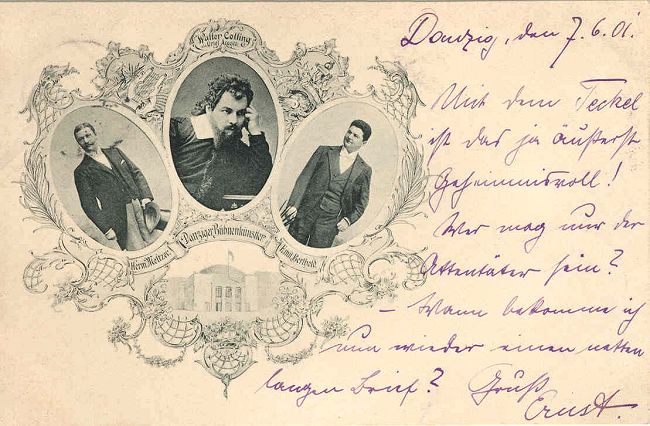 Walter Cotling
Uriel Acosta
Herm. Meltzer
Danziger Bühnenkünstler
Berthold
Danzig, den 7.6.01.
Mit dem Teckel
ist das ja äußerst
Geheimnisvoll!
Wer mag nur der
Attentäter sein?
– Wann bekomme ich
nun wieder einen netten
langen Brief? Gruß
Ernst.